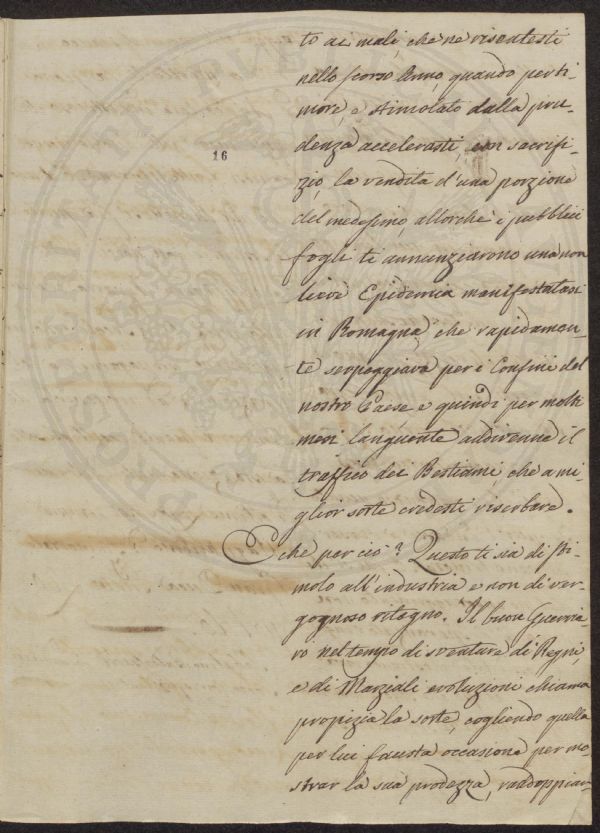 to ai mali, che ne risentesti
nello scorso Anno, quando per ti-
more, e stimolato dalla pru-
denza accelerasti, con sacrifi-
zio, la vendita d'una porzione
del medesimo, allorchè i pubblici
fogli ti annunziarono una non
lieve Epidemia manifestatasi
in Romagna, che rapidamen-
te serpeggiava per i Confini del
nostro Paese e quindi per molti
mesi languente addivenne il
traffico dei Bestiami, che a mi-
glior sorte credesti riserbare.
E che per ciò? Questo ti sia di sti-
molo all'industria e non di ver-
gognoso ritegno. Il buon Guerrie
ro nel tempo di sventure di Regni,
e di Marziali evoluzioni chiama
propizia la sorte, cogliendo quella
per lui fausta occasione per mo-
strar la sua prodezza, raddoppian
16